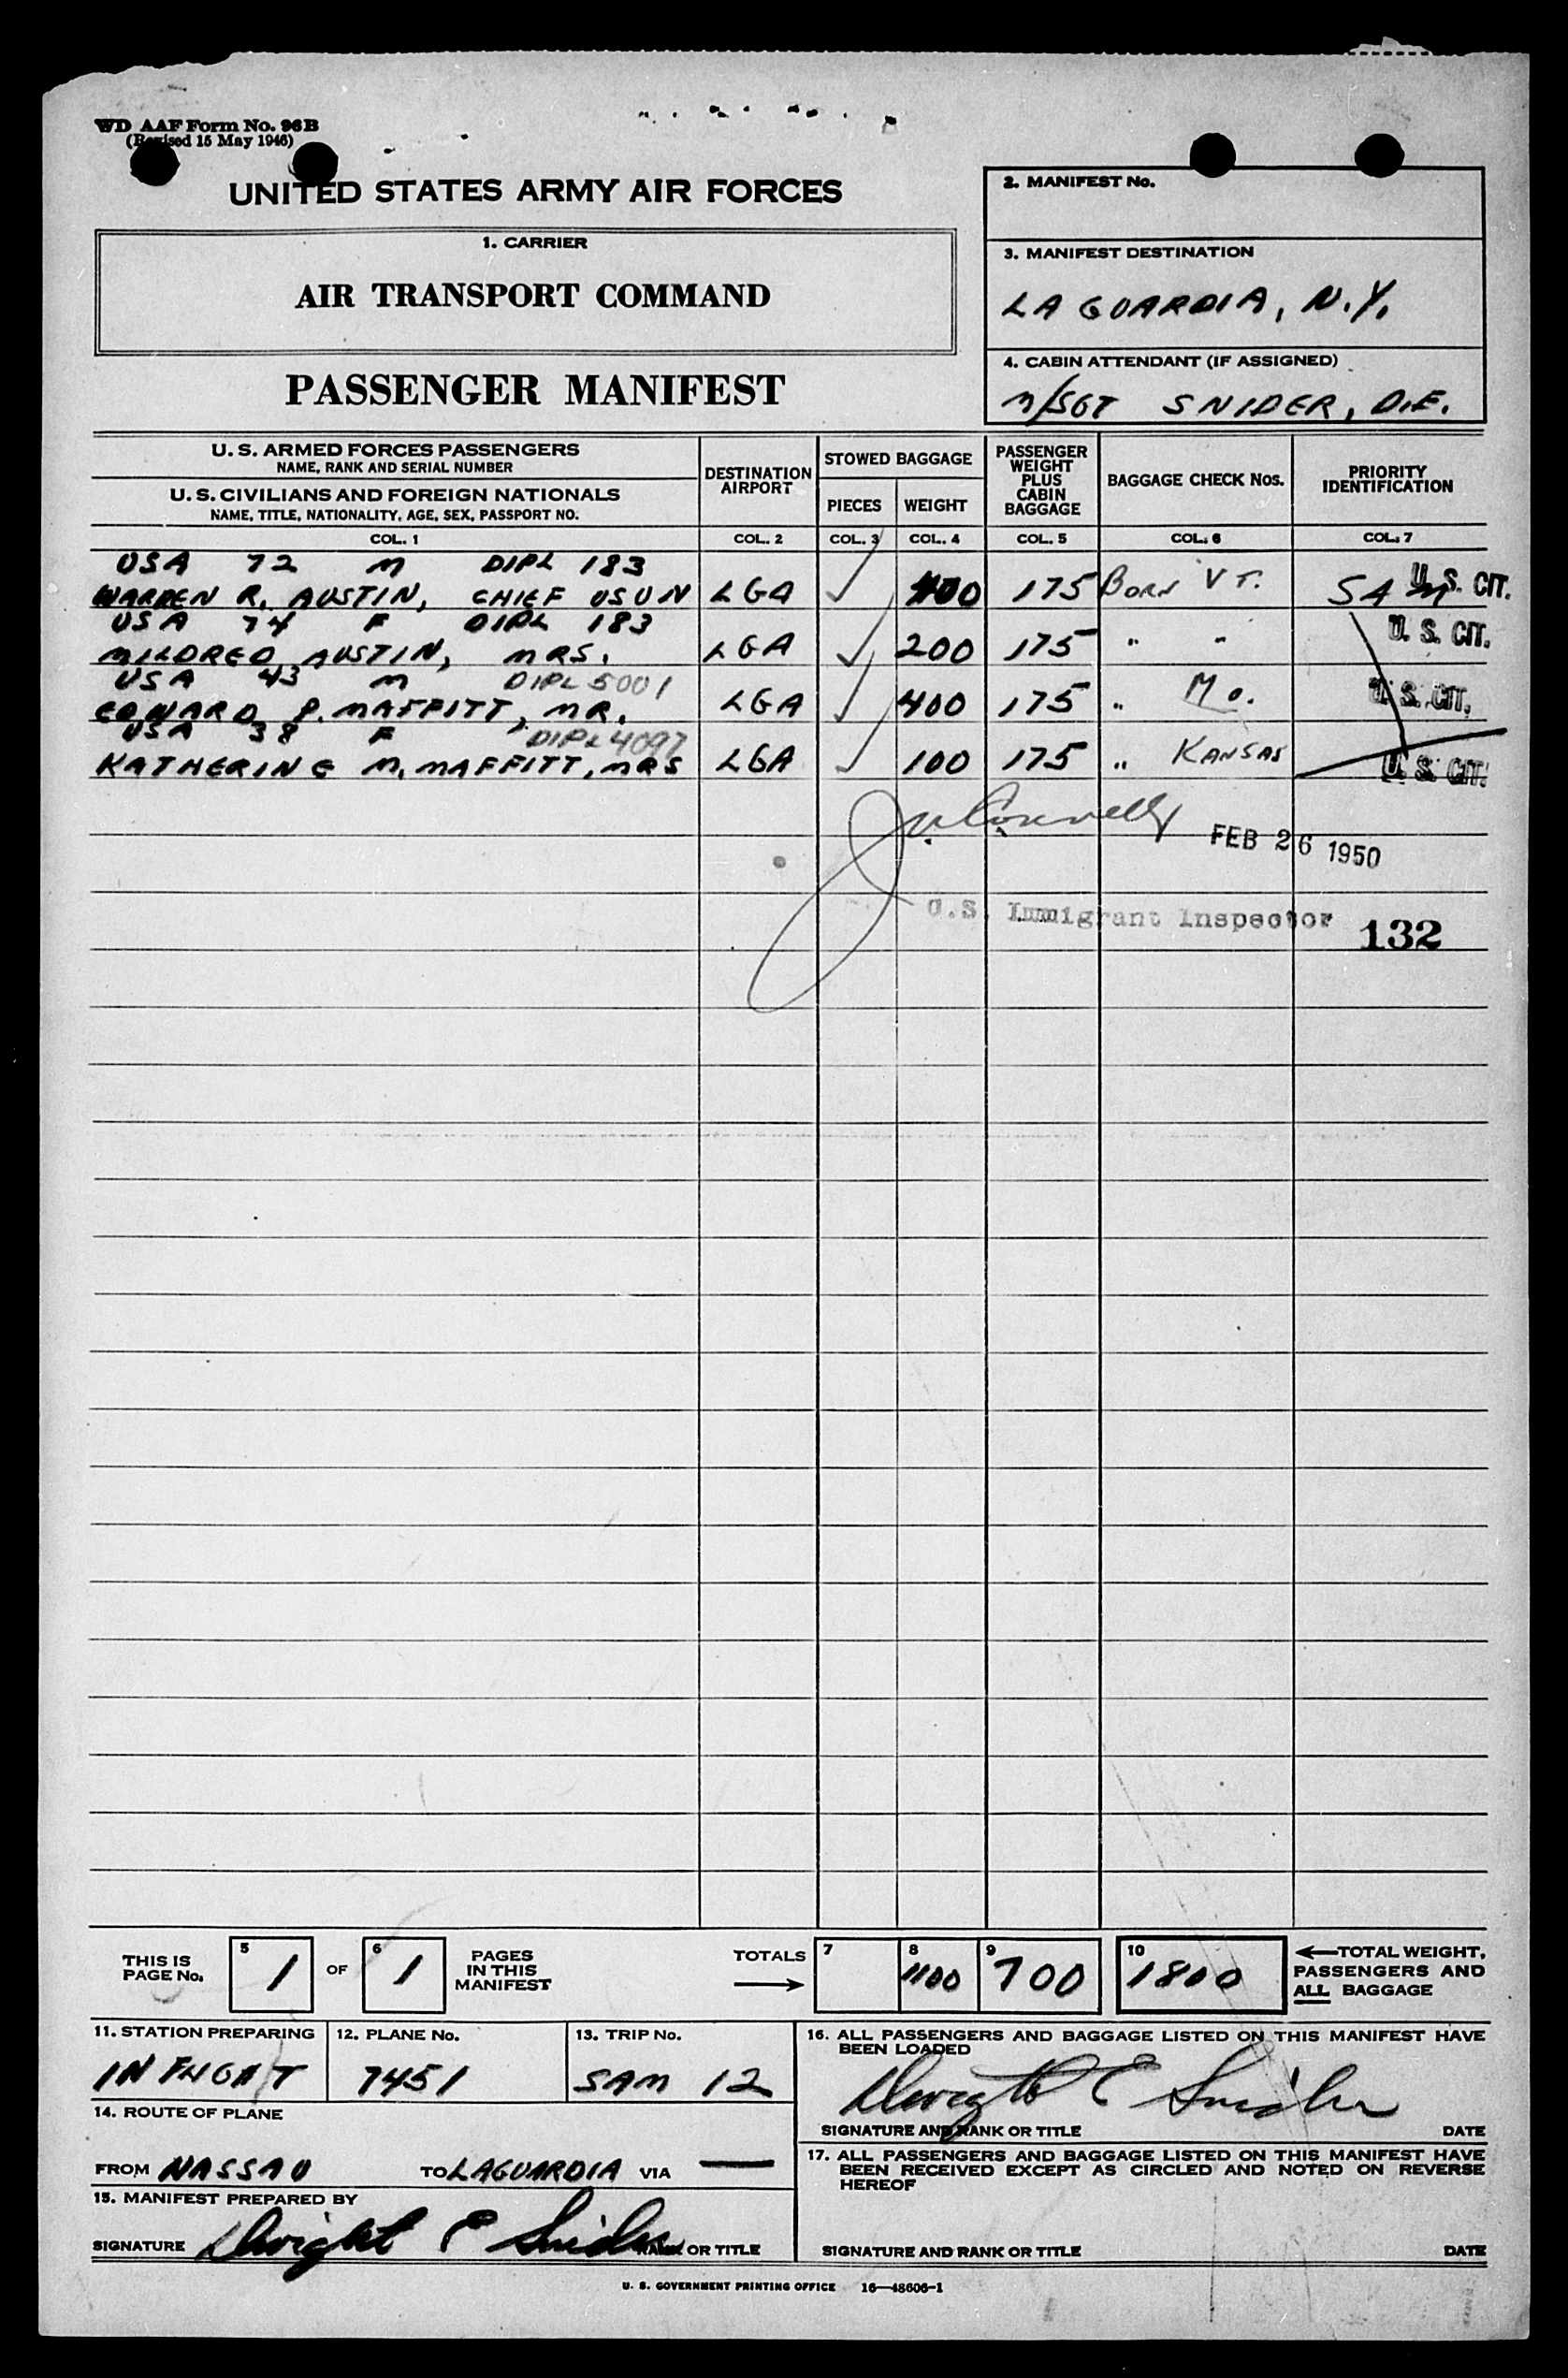 WD AAF Form No. 96B
(Revised 15 May 1946)
UNITED STATES ARMY AIR FORCES
1. CARRIER
AIR TRANSPORT COMMAND
PASSENGER MANIFEST
2. MANIFEST No.
3. MANIFEST DESTINATION
LA GUARDIA, N.Y.
4. CABIN ATTENDANT (IF ASSIGNED)
M/SGT SNIDER, D.E.
U. S. ARMED FORCES PASSENGERS
NAME, RANK AND SERIAL NUMBER
U. S. CIVILIANS AND FOREIGN NATIONALS
NAME, TITLE, NATIONALITY, AGE, SEX, PASSPORT NO.
DESTINATION AIRPORT
STOWED BAGGAGE
PIECES WEIGHT
PASSENGER WEIGHT PLUS CABIN BAGGAGE
BAGGAGE CHECK Nos.
PRIORITY IDENTIFICATION
COL. 1 COL. 2 COL. 3 COL. 4 COL. 5 COL. 6 COL. 7
USA 72 M DIPL 183
WARREN R. AUSTIN, CHIEF USUN LGA ✓ 400 175 BORN VT. SAM U. S. CIT.
USA 74 F DIPL 183
MILDRED AUSTIN, MRS. LGA ✓ 200 175 " " U. S. CIT.
USA 43 M DIPL 5001
EDWARD P. MAFFITT, MR. LGA ✓ 400 175 " Mo. U. S. CIT.
USA 38 F DIPL 4097
KATHERINE M. MAFFITT, MRS LGA ✓ 100 175 " KANSAS U. S. CIT.
FEB 26 1950
U.S. Immigrant Inspector 132
THIS IS PAGE No. 5 1 OF 6 1 PAGES IN THIS MANIFEST
TOTALS 7 8 1100 9 700 10 1800 TOTAL WEIGHT, PASSENGERS AND ALL BAGGAGE
11. STATION PREPARING
IN FLIGHT
12. PLANE No.
7451
13. TRIP No.
SAM 12
14. ROUTE OF PLANE
FROM NASSAU TO LAGUARDIA VIA —
15. MANIFEST PREPARED BY
SIGNATURE Dwight E Snider RANK OR TITLE
16. ALL PASSENGERS AND BAGGAGE LISTED ON THIS MANIFEST HAVE
BEEN LOADED
Dwight E Snider
SIGNATURE AND RANK OR TITLE DATE
17. ALL PASSENGERS AND BAGGAGE LISTED ON THIS MANIFEST HAVE
BEEN RECEIVED EXCEPT AS CIRCLED AND NOTED ON REVERSE
HEREOF
SIGNATURE AND RANK OR TITLE DATE
U. S. GOVERNMENT PRINTING OFFICE 16—48606-1